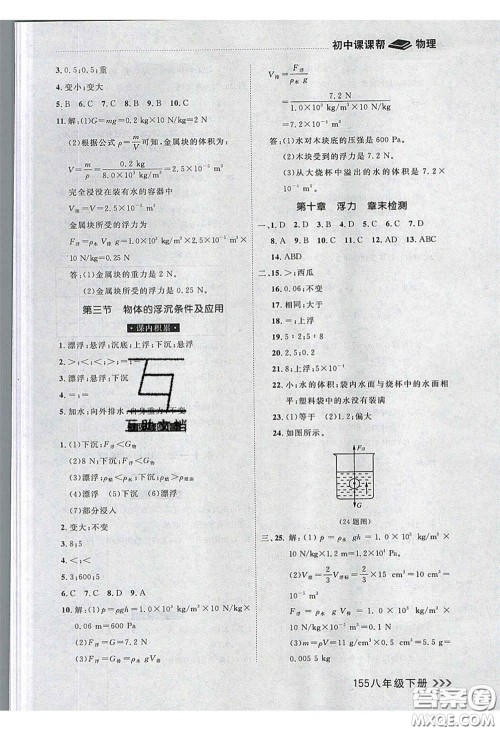 初中课课帮 物理
3. 0.5;0.5;重
4. 变小;变大
5. B 6. C 7. B 8. B 9. B 10. C
11. 解:(1)G=mg=0.2 kg×10 N/kg=2 N
(2)根据公式 ρ=m/V 可知,金属块的体积为:
V=m/ρ=0.2 kg/(8.0×10³ kg/m³)=2.5×10⁻⁵ m³
完全浸没在装有水的容器中
V排=V=2.5×10⁻⁵ m³
金属块所受的浮力为
F浮=ρ水 V排 g=1.0×10³ kg/m³×2.5×10⁻⁵ m³×10 N/kg=0.25 N
答:(1)金属块的重力是 2 N。
(2)金属块所受的浮力是 0.25 N。
第三节 物体的浮沉条件及应用
课内积累
1. 漂浮;悬浮;沉底;上浮;下沉;悬浮
2. >;<;=
3. 漂浮;下沉;悬浮
4. =;=
5. 加水;向外排水
互助文档
1. (1)下沉;F浮<G物
(2)8 N;下沉;F浮<G物
(3)漂浮;ρ物<ρ液;悬浮;ρ物=ρ液;下沉;ρ物>ρ液
(4)漂浮 (5)下沉 (6)漂浮
(7)部分浸入
2. 变大;不变
3. 8;5
4. <;<
5. 3;600;5
6. C 7. C 8. D 9. C
10. 解:(1)p=ρgh=1.0×10³ kg/m³×10 N/kg×0.06 m=600 Pa
(2)F浮=G=7.2 N
(3)F浮=ρ水 g V排
V排=F浮/(ρ水 g)
=7.2 N/(1.0×10³ kg/m³×10 N/kg)
=7.2×10⁻⁴ m³
答:(1)水对木块底的压强是 600 Pa。
(2)木块受到的浮力是 7.2 N。
(3)从大烧杯中溢出的水的体积是 7.2×10⁻⁴ m³。
第十章 浮力 章末检测
一、1. D 2. D 3. B 4. C 5. C 6. C 7. D
8. A 9. B 10. C 11. D 12. AB 13. ABC
14. ABD
二、15. >;西瓜
16. 0.06;不变
17. 相同;大于
18. =;上浮
19. 漂浮;下沉
20. 2.5;0.2
21. 8;上浮;下沉;悬浮
22. 小;水的体积;袋内水面与烧杯中的水面相平;塑料袋中的水没有装满
23. (1)等于 (2)1.2;偏大
24. 如图所示。
F浮
G
(24题图)
三、25. 解:(1)p=ρ水 gh=1.0×10³ kg/m³×10 N/kg×0.1 m=1×10³ Pa